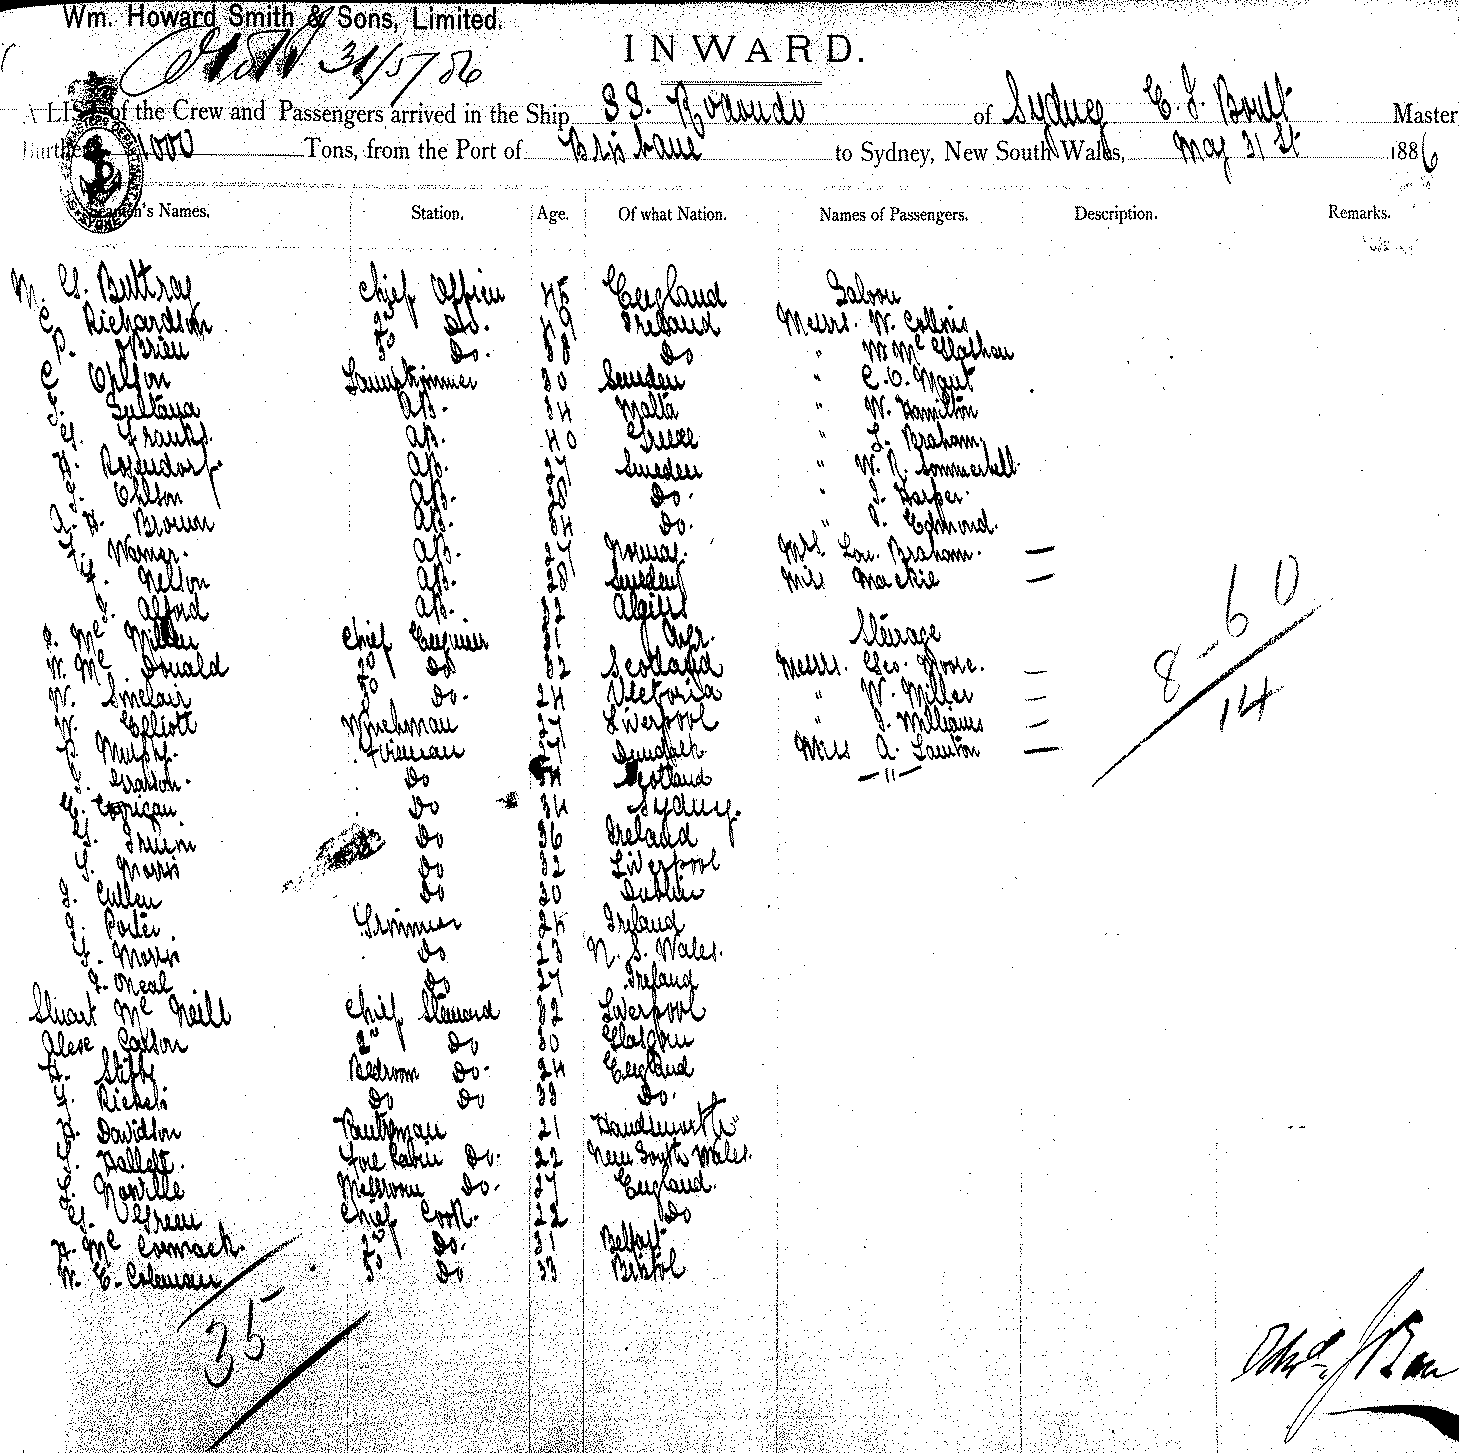 Wm. Howard Smith & Sons, Limited.
31/5/86
INWARD.
A LIST of the Crew and Passengers arrived in the Ship SS. Rodondo of Sydney E. J. Boult Master
Burthen 1000 Tons, from the Port of Brisbane to Sydney, New South Wales, May 31st 1886
Names. Station. Age. Of what Nation. Names of Passengers. Description. Remarks.
M. G. Buttray Chief Officer 45 England Saloon
C. Richardson 2nd Do. 49 Ireland Messrs. W. Collins
P. OBrien Do. 38 Do " 
C. Ohlson Lampstrimmer 30 Sweden " C. O. Mant
J. Sultana AB. 34 Malta " W. Hamilton
G. Franks. AB. 40 Greece " L. Braham,
H. Rosendorf AB. 27 Sweden " W. R. Sommerhell
J. Ohlson AB. 28 Do. " J. Harper.
A. H. Brown AB. 34 Do. " J. Edmond.
Warner. AB. 27 Norway. Mrs Lou. Braham. —
Nelson AB. 28 Sweden Miss Mackie —
J. Alford AB. 22 Algiers
Mc Millen Chief Engineer 31 Ayr. Steirage
W. Mc Donald 2nd Do 32 Scotland Messrs. Geo. Moore. —
W. Sinclair 3rd Do. 24 Victoria " W. Miller —
W. Elliott Winchman 27 Liverpool " J. Williams —
P. Murphy. Fireman 27 Dundalk Miss A. Lawton —
Do 34 Scotland — " —
Corrigan Do 34 Sydney.
G. Irwin Do 36 Ireland
J. Morris Do 32 Liverpool
J. Cullen Do 30 Dublin
J. Porter. Trimmer 24 Ireland
J. Morris Do 23 N. S. Wales.
J. ONeal Do 27 Ireland
Stuart Mc Neill Chief Steward 32 Liverpool
Carson 2nd Do 30 Glasgow
H. Stibbs Bedroom Do. 24 England
Rickets Do Do 33 Do.
H. Davidson Pantryman 21 Handsworth
J. Hallett. Fore Cabin Do. 22 New South Wales.
Neville Messroom Do. 27 England.
G. Green Chief Cook. 22 Do
H. Mc Cormack. 2nd Do. 31 Belfast
W. E. Coleman 3rd Do 33 Bristol
8 - 6 0
14
35